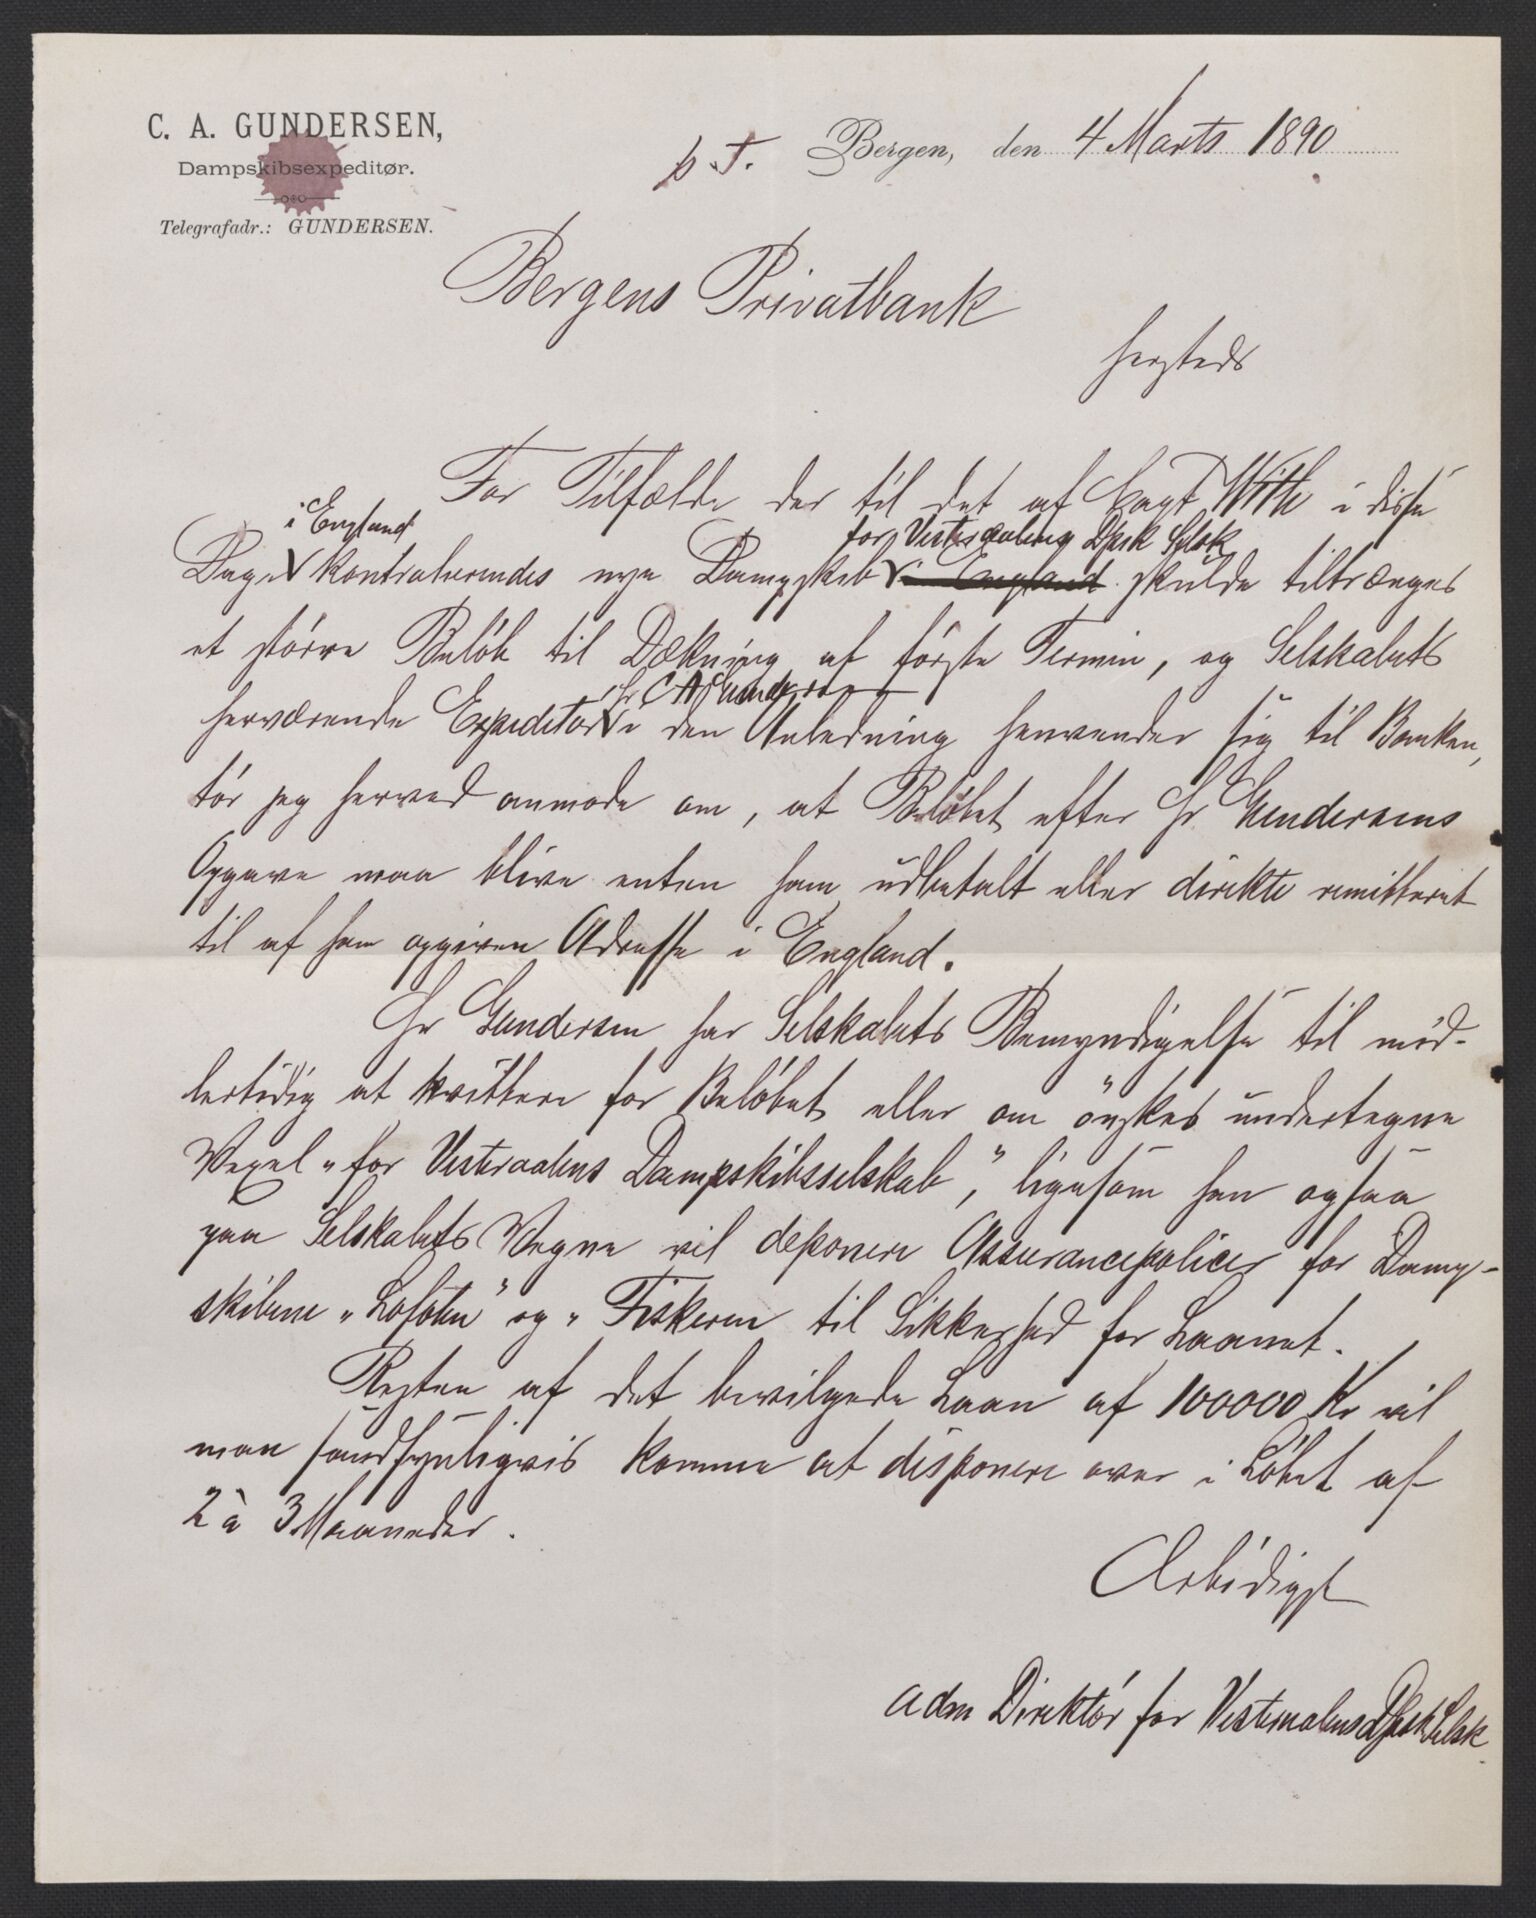 C. A. GUNDERSEN,
Dampskibsexpeditør.
Telegrafadr.: GUNDERSEN.
p. T. Bergen, den 4 Marts 1890
Bergens Privatbank
hersteds
For Tilfælde der til det af Capt With i disse
i England for Vesteraalens Dpsk Selsk
Dage kontraherendes nye Dampskib i England skulde tiltrænges
et større Beløb til Dækning af første Termin, og Selskabets
Hr C A Gundersen
herværende Expeditør i den Anledning henvender sig til Banken,
tør jeg herved anmode om, at Beløbet efter Hr Gundersens
Opgave maa blive enten ham udbetalt eller direkte remitteret
til af ham opgiven Adresse i England.
Hr Gundersen har Selskabets Bemyndigelse til mid-
lertidig at kvittere for Beløbet eller om ønskes undertegne
Vexel „for Vesteraalens Dampskibsselskab", ligesom han ogsaa
paa Selskabets Vegne vil deponere Assurancepolicer for Damp-
skibene „Lofoten" og „Fiskeren til Sikkerhed for Laanet.
Resten af det bevilgede Laan af 100000 Kr vil
man sandsynligvis komme at disponere over i Løbet af
2 à 3 Maaneder.
Ærbødigst
adm Direktør for Vesteraalens Dpsk Selsk